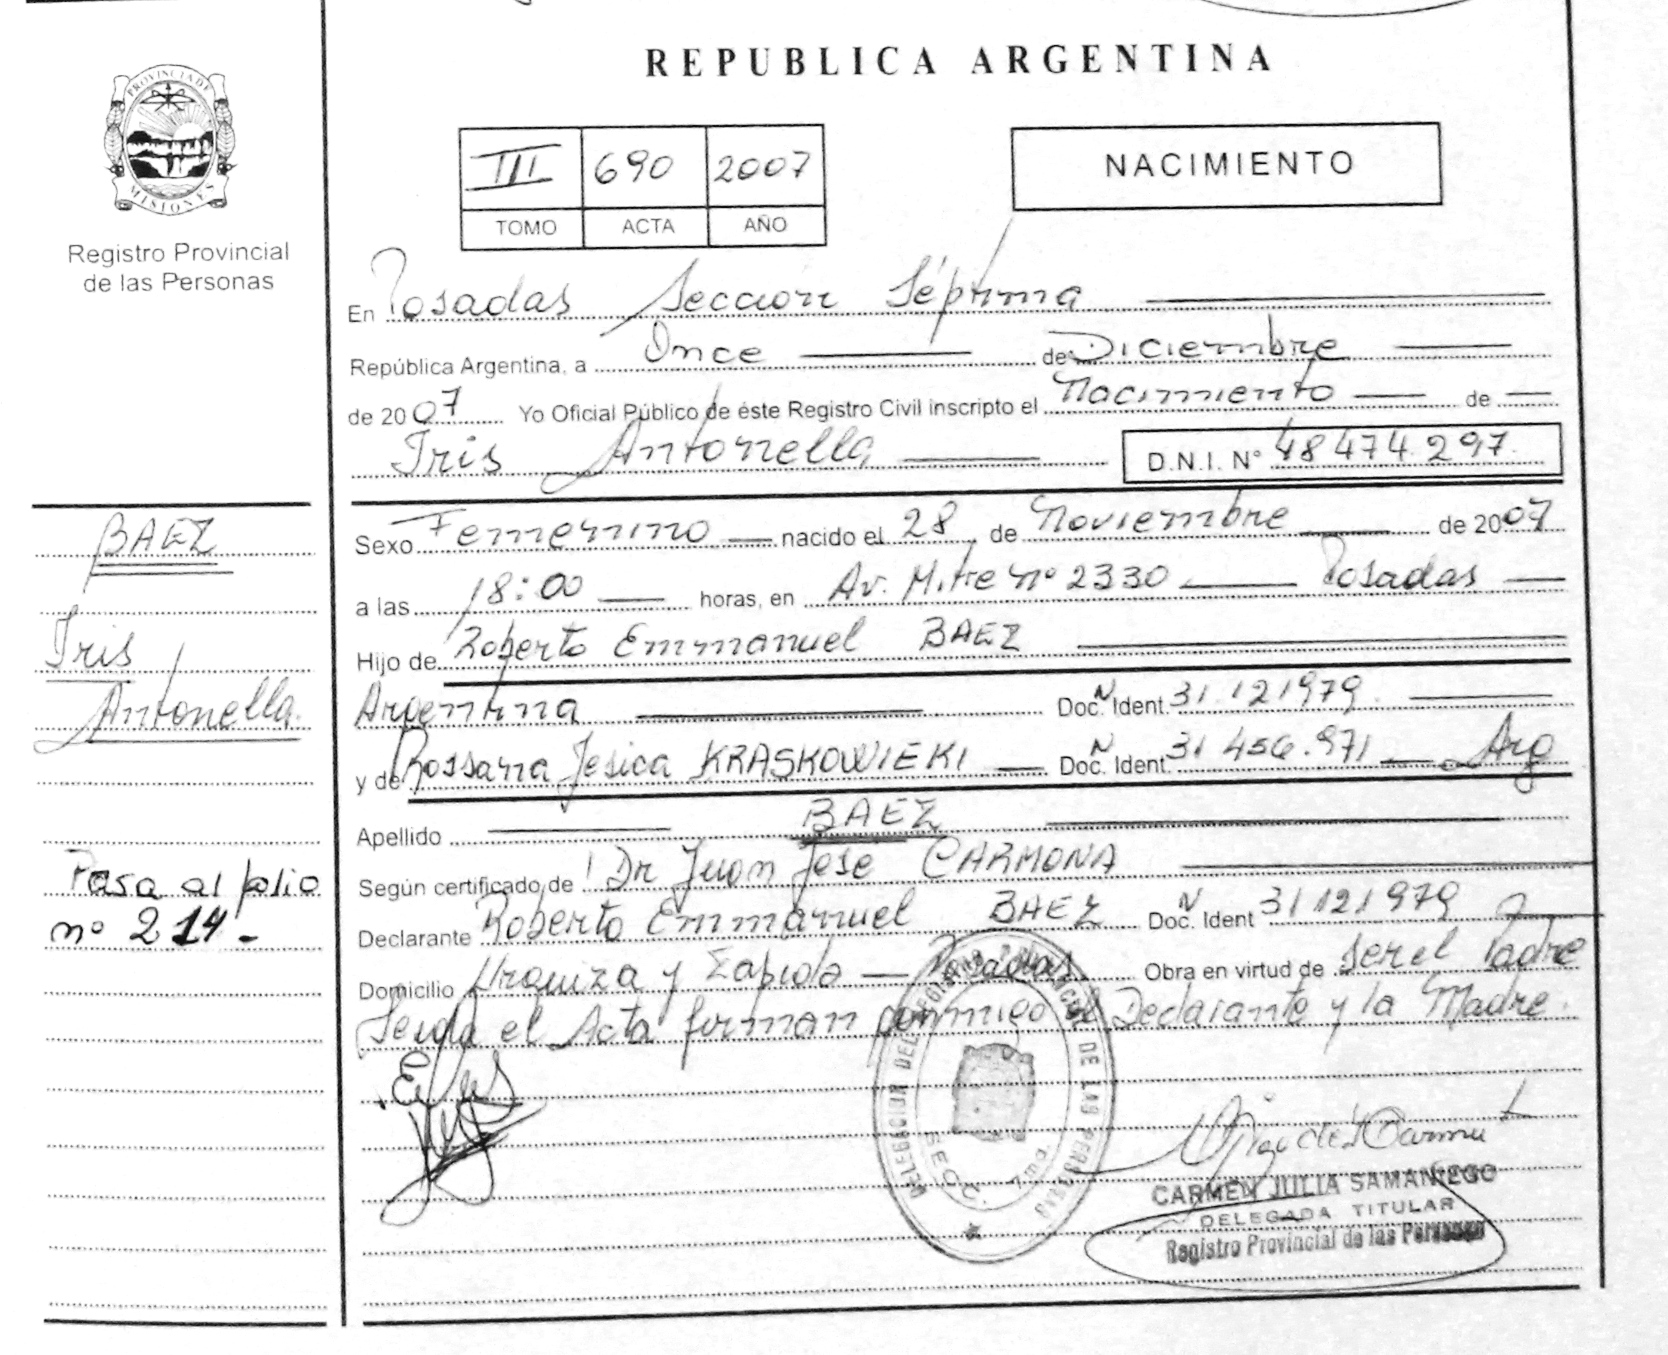 REPUBLICA ARGENTINA
PROVINCIA DE
MISIONES
Registro Provincial
de las Personas
III 690 2007
TOMO ACTA AÑO
NACIMIENTO
En Posadas Sección Séptima
República Argentina, a Once de Diciembre
de 2007 Yo Oficial Público de éste Registro Civil inscripto el Nacimiento de
Iris Antonella D.N.I. N° 48 474 297
BAEZ
Iris
Antonella.
Pasa al folio
nº 214-
Sexo Femenino nacido el 28 de Noviembre de 2007
a las 18:00 horas, en Av. Mitre nº 2330 Posadas
Hijo de Roberto Emmanuel BAEZ
Argentina Doc. N Ident. 31.121979.
y de Rossana Jesica KRASKOWIEKI Doc. N Ident. 31 456.971 Arg
Apellido BAEZ
Según certificado de Dr Juan Jose CARMONA
Declarante Roberto Emmanuel BAEZ Doc. N Ident 31121979
Domicilio Urquiza y Zapiola - Posadas Obra en virtud de Ser el Padre
Leida el Acta firman conmigo el Declarante y la Madre.
DELEGACION DEL REGISTRO PROVINCIAL DE LAS PERSONAS
SECC. 7ma.
CARMEN JULIA SAMANIEGO
DELEGADA TITULAR
Registro Provincial de las Personas